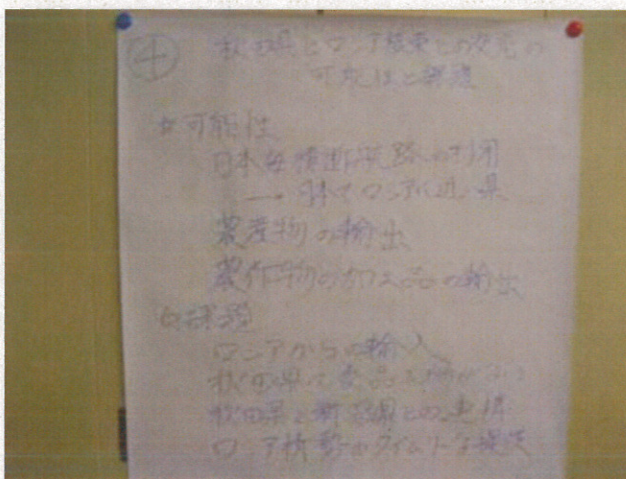 ④ 秋田県とロシア極東との交流の
可能性と課題
☆可能性
日本海横断航路の利用
→ 日本でロシアに近い県
農産物の輸出
農作物の加工品の輸出
課題
ロシアからの輸入
秋田県で
秋田県と新潟県との連携
ロシア情勢のタイムリーな提供